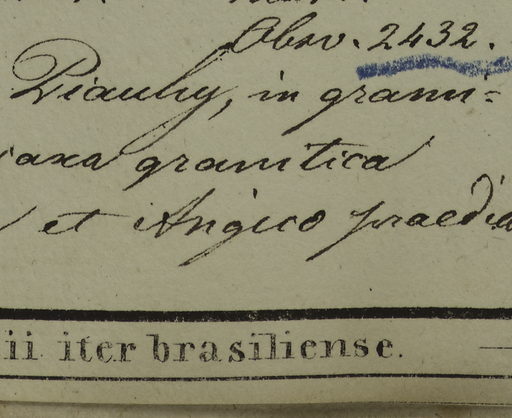 Obsv. 2432.
Piauhy, in grami=
saxa granitica
et Angico praedia
ii iter brasiliense.